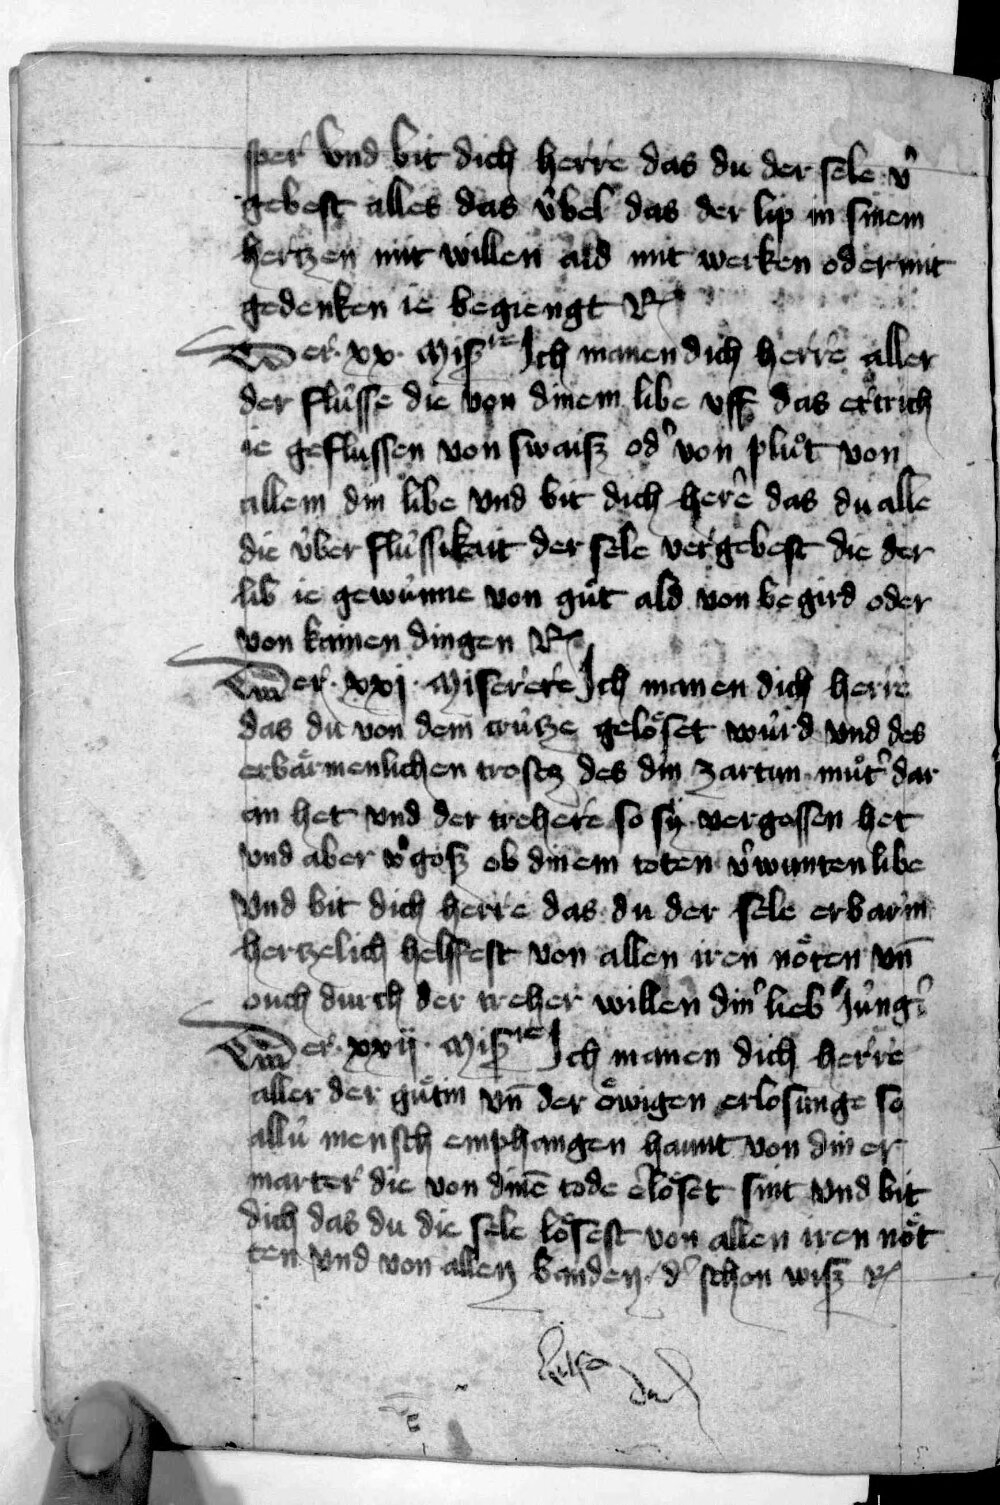 sper vnd bit dich herre das du der sele v̾
gebest alles das v̾bel das der lip in sinem
hertzen mit willen ald mit werken oder mit
gedenken ie begiengt R
Der · xx · Mis͛re Ich manen dich herre aller
der flu̍sse die von dinem libe vff das ertrich
ie geflussen von swaisz od̾ von pluͦt von
allem din libe vnd bit dich here das du alle
die u̍ber flu̍ssikait der sele vergebest die der
lib ie gewu̍nne von guͦt ald von begird oder
von kainen dingen R
Der · xxj · Miserere Ich manen dich herre
das du von dem cru̍tze gelo̎set wu̍rd vnd des
erba̎rmenlichen trostz des din zartun muͦt̾ dar
an het vnd der trehere so sy vergossen het
vnd aber v̾gosz ob dinem toten v̾wunten libe
vnd bit dich herre das du der sele erbarm
hertzelich helffest von allen iren no̎ten vn̄
ouch durch der treher willen din̾ lieb Ju̍ng̾
Der · xxij · Mis͛re Ich manen dich herre
aller der gu̎tin vn̄ der e̎wigen erlosunge so
allu̍ mensch emphangen haunt von diner
marter die von dinē tode erlo̎set sint vnd bit
dich das du die sele lo̎sest von allen iren no̎t
ten vnd von allen banden / d̾ schon wisz R